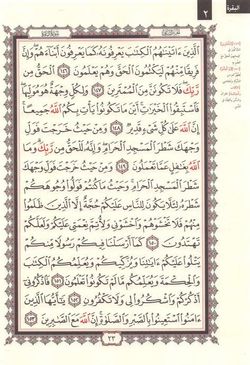 البقرة
٢
الَّذِينَ ءَاتَيْنَٰهُمُ الْكِتَٰبَ يَعْرِفُونَهُ كَمَا يَعْرِفُونَ أَبْنَاءَهُمْ وَإِنَّ
فَرِيقًا مِّنْهُمْ لَيَكْتُمُونَ الْحَقَّ وَهُمْ يَعْلَمُونَ ١٤٦ الْحَقُّ مِن
رَّبِّكَ فَلَا تَكُونَنَّ مِنَ الْمُمْتَرِينَ ١٤٧ وَلِكُلٍّ وِجْهَةٌ هُوَ مُوَلِّيهَا
فَاسْتَبِقُوا الْخَيْرَٰتِ أَيْنَ مَا تَكُونُوا يَأْتِ بِكُمُ اللَّهُ جَمِيعًا
إِنَّ اللَّهَ عَلَىٰ كُلِّ شَيْءٍ قَدِيرٌ ١٤٨ وَمِنْ حَيْثُ خَرَجْتَ فَوَلِّ
وَجْهَكَ شَطْرَ الْمَسْجِدِ الْحَرَامِ وَإِنَّهُ لَلْحَقُّ مِن رَّبِّكَ وَمَا
اللَّهُ بِغَٰفِلٍ عَمَّا تَعْمَلُونَ ١٤٩ وَمِنْ حَيْثُ خَرَجْتَ فَوَلِّ وَجْهَكَ
شَطْرَ الْمَسْجِدِ الْحَرَامِ وَحَيْثُ مَا كُنتُمْ فَوَلُّوا وُجُوهَكُمْ
شَطْرَهُ لِئَلَّا يَكُونَ لِلنَّاسِ عَلَيْكُمْ حُجَّةٌ إِلَّا الَّذِينَ ظَلَمُوا
مِنْهُمْ فَلَا تَخْشَوْهُمْ وَاخْشَوْنِي وَلِأُتِمَّ نِعْمَتِي عَلَيْكُمْ وَلَعَلَّكُمْ
تَهْتَدُونَ ١٥٠ كَمَا أَرْسَلْنَا فِيكُمْ رَسُولًا مِّنكُمْ
يَتْلُوا عَلَيْكُمْ ءَايَٰتِنَا وَيُزَكِّيكُمْ وَيُعَلِّمُكُمُ الْكِتَٰبَ
وَالْحِكْمَةَ وَيُعَلِّمُكُم مَّا لَمْ تَكُونُوا تَعْلَمُونَ ١٥١ فَاذْكُرُونِي
أَذْكُرْكُمْ وَاشْكُرُوا لِي وَلَا تَكْفُرُونِ ١٥٢ يَٰأَيُّهَا الَّذِينَ
ءَامَنُوا اسْتَعِينُوا بِالصَّبْرِ وَالصَّلَوٰةِ إِنَّ اللَّهَ مَعَ الصَّٰبِرِينَ ١٥٣
٢٣